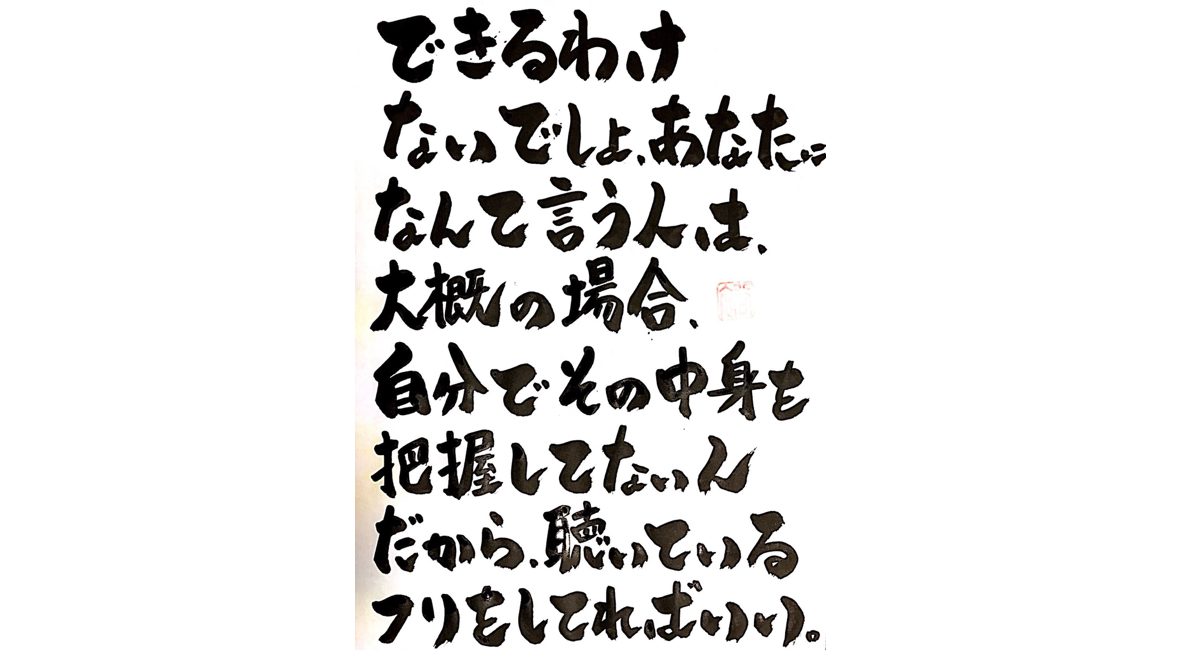 できるわけ
ないでしょ、あなたに
なんて言う人は、
大概の場合、
自分でその中身も
把握してないん
だから、聴いている
フリをしてればいい。